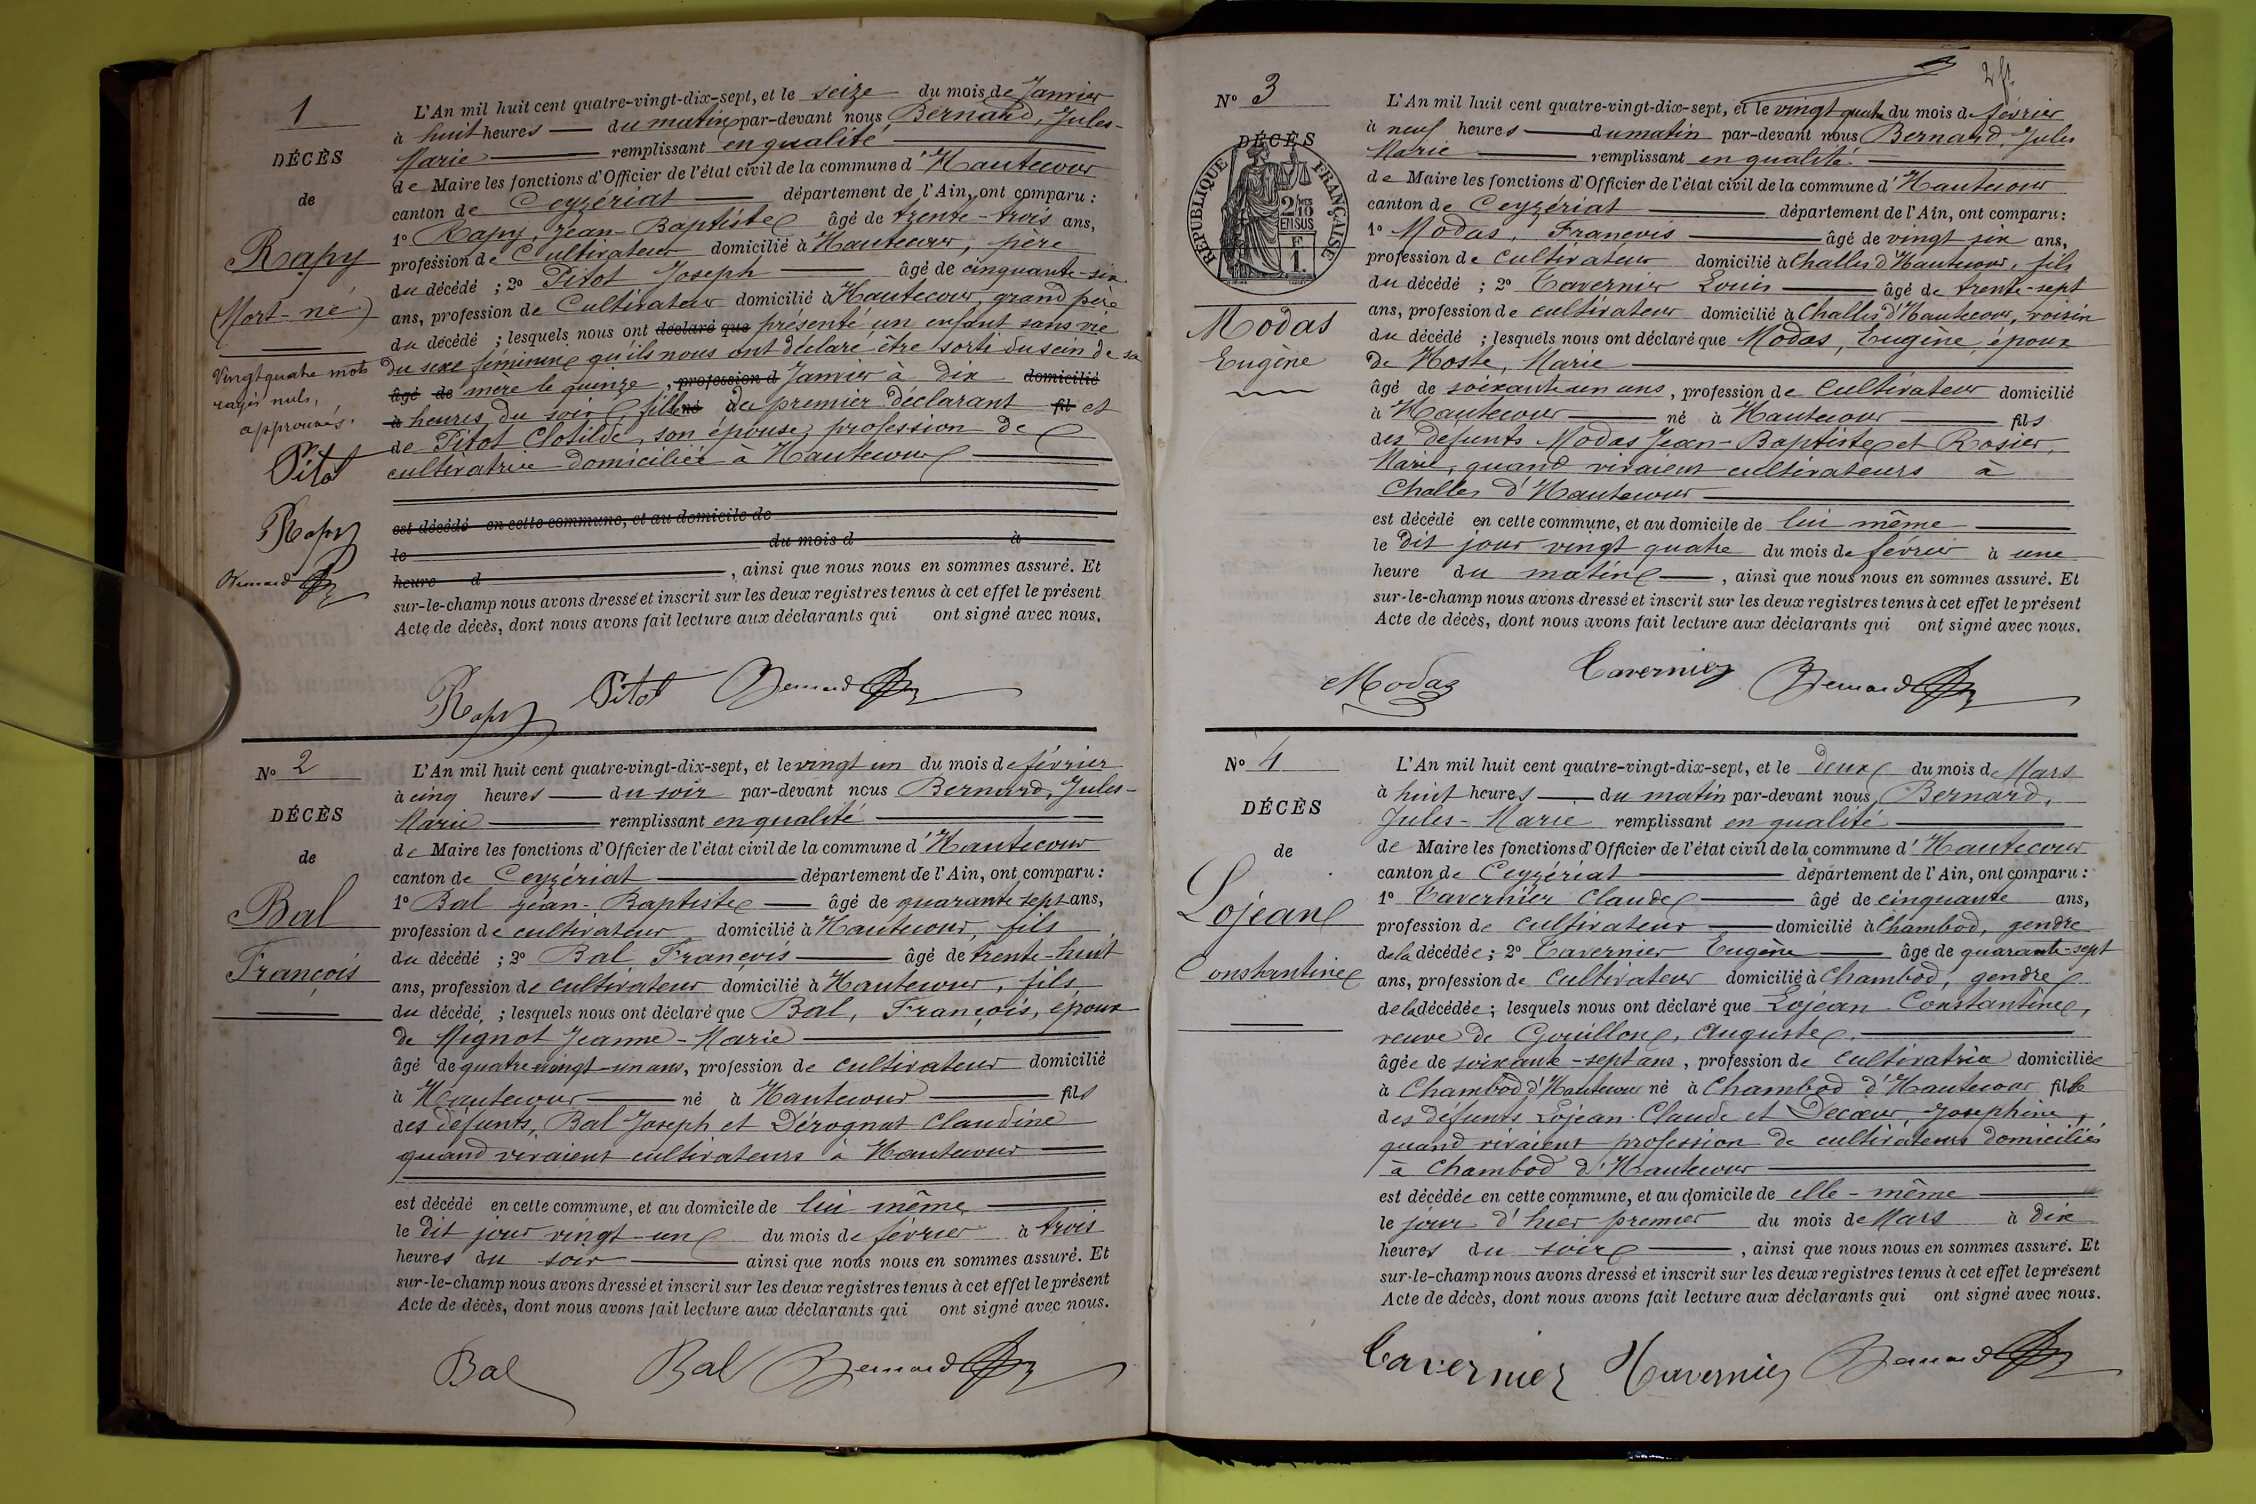 1
DÉCÈS
de
Rapy
(Mort-né)
Vingt quatre mots
rayés nuls,
approuvés.
Pitot
Rapy
Bernard
L'An mil huit cent quatre-vingt-dix-sept, et le seize du mois de Janvier
à huit heures du matin par-devant nous Bernard, Jules-
Marie remplissant en qualité
de Maire les fonctions d'Officier de l'état civil de la commune d'Hautecour
canton de Ceyzériat département de l'Ain, ont comparu :
1º Rapy, Jean-Baptiste âgé de trente-trois ans,
profession de Cultivateur domicilié à Hautecour, père
du décédé ; 2º Pitot Joseph âgé de cinquante-six
ans, profession de Cultivateur domicilié à Hautecour, grand père
du décédé ; lesquels nous ont déclaré que présenté un enfant sans vie
du sexe féminin qu'ils nous ont déclaré être sorti du sein de sa
âgé de mère le quinze, profession d Janvier à dix domicilié
à heures du soir, fille né du premier déclarant fil et
de Pitot Clotilde, son épouse, profession de
cultivatrice domiciliée à Hautecour
est décédé en cette commune, et au domicile de
le du mois d à
heure d , ainsi que nous nous en sommes assuré. Et
sur-le-champ nous avons dressé et inscrit sur les deux registres tenus à cet effet le présent
Acte de décès, dont nous avons fait lecture aux déclarants qui ont signé avec nous.
Rapy Pitot Bernard
Nº 2
DÉCÈS
de
Bal
François
L'An mil huit cent quatre-vingt-dix-sept, et le vingt un du mois de février
à cinq heures du soir par-devant nous Bernard, Jules-
Marie remplissant en qualité
de Maire les fonctions d'Officier de l'état civil de la commune d'Hautecour
canton de Ceyzériat département de l'Ain, ont comparu :
1º Bal Jean-Baptiste âgé de quarante sept ans,
profession de cultivateur domicilié à Hautecour, fils
du décédé ; 2º Bal François âgé de trente-huit
ans, profession de cultivateur domicilié à Hautecour, fils,
du décédé ; lesquels nous ont déclaré que Bal, François, époux
de Mignot Jeanne-Marie
âgé de quatre vingt-un ans, profession de cultivateur domicilié
à Hautecour né à Hautecour fils
des défunts, Bal Joseph et Dérognat Claudine
quand vivaient cultivateurs à Hautecour
est décédé en cette commune, et au domicile de lui même
le dit jour vingt-un du mois de février à trois
heures du soir ainsi que nous nous en sommes assuré. Et
sur-le-champ nous avons dressé et inscrit sur les deux registres tenus à cet effet le présent
Acte de décès, dont nous avons fait lecture aux déclarants qui ont signé avec nous.
Bal Bal Bernard
Nº 3
DÉCÈS
RÉPUBLIQUE FRANÇAISE
2/10 EN SUS
F
1
Modas
Eugène
L'An mil huit cent quatre-vingt-dix-sept, et le vingt quatre du mois de février
à neuf heures du matin par-devant nous Bernard, Jules
Marie remplissant en qualité
de Maire les fonctions d'Officier de l'état civil de la commune d'Hautecour
canton de Ceyzériat département de l'Ain, ont comparu :
1º Modas, François âgé de vingt six ans,
profession de cultivateur domicilié à Challes d'Hautecour, fils
du décédé ; 2º Tavernier Louis âgé de trente-sept
ans, profession de cultivateur domicilié à Challes d'Hautecour, voisin
du décédé ; lesquels nous ont déclaré que Modas, Eugène, époux
de Hoste, Marie
âgé de soixante un ans, profession de Cultivateur domicilié
à Hautecour né à Hautecour fils
des défunts Modas Jean-Baptiste et Rosier,
Marie, quand vivaient cultivateurs à
Challes d'Hautecour
est décédé en cette commune, et au domicile de lui même
le dit jour vingt quatre du mois de février à une
heure du matin , ainsi que nous nous en sommes assuré. Et
sur-le-champ nous avons dressé et inscrit sur les deux registres tenus à cet effet le présent
Acte de décès, dont nous avons fait lecture aux déclarants qui ont signé avec nous.
Modas Tavernier Bernard
Nº 4
DÉCÈS
de
Lojean
Constantine
L'An mil huit cent quatre-vingt-dix-sept, et le deux du mois de Mars
à huit heures du matin par-devant nous, Bernard,
Jules-Marie remplissant en qualité
de Maire les fonctions d'Officier de l'état civil de la commune d'Hautecour
canton de Ceyzériat département de l'Ain, ont comparu :
1º Tavernier Claude âgé de cinquante ans,
profession de cultivateur domicilié à Chambod, gendre
de la décédée ; 2º Tavernier Eugène âgé de quarante-sept
ans, profession de cultivateur domicilié à Chambod, gendre
de la décédée ; lesquels nous ont déclaré que Lojean Constantine,
veuve de Gouillon, Auguste
âgée de soixante-sept ans, profession de cultivatrice domiciliée
à Chambod d'Hautecour né à Chambod d'Hautecour fille
des défunts Lojean Claude et Decœur, Josephine,
quand vivaient profession de cultivateurs domiciliés
à Chambod d'Hautecour
est décédée en cette commune, et au domicile de elle-même
le jour d'hier premier du mois de Mars à dix
heures du soir , ainsi que nous nous en sommes assuré. Et
sur-le-champ nous avons dressé et inscrit sur les deux registres tenus à cet effet le présent
Acte de décès, dont nous avons fait lecture aux déclarants qui ont signé avec nous.
Tavernier Tavernier Bernard